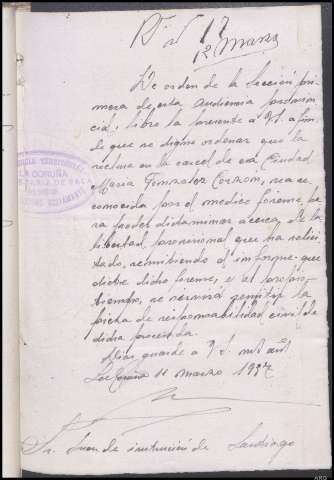 17
12 Marzo
De orden de la Sección pri-
mera de esta Audiencia provin-
cial, libro la presente a V.S. a fin
de que se digne ordenar que la
reclusa en la carcel de esa Ciudad
Maria González, sea re-
conocida por el medico forense, pa-
ra poder dictaminar acerca de la
libertad provisional que ha solici-
tado, remitiendo el informe que
dicte dicho forense, y al propio
tiempo, se servirá remitir la
pieza de responsabilidad civil de
dicha procesada.
Dios guarde a V.S. m.s añ.s
La Coruña 11 marzo 1937
Sr. Juez de instrucción de Santiago
AUDIENCIA TERRITORIAL
LA CORUÑA
SECRETARIA DE SALA
ARQ